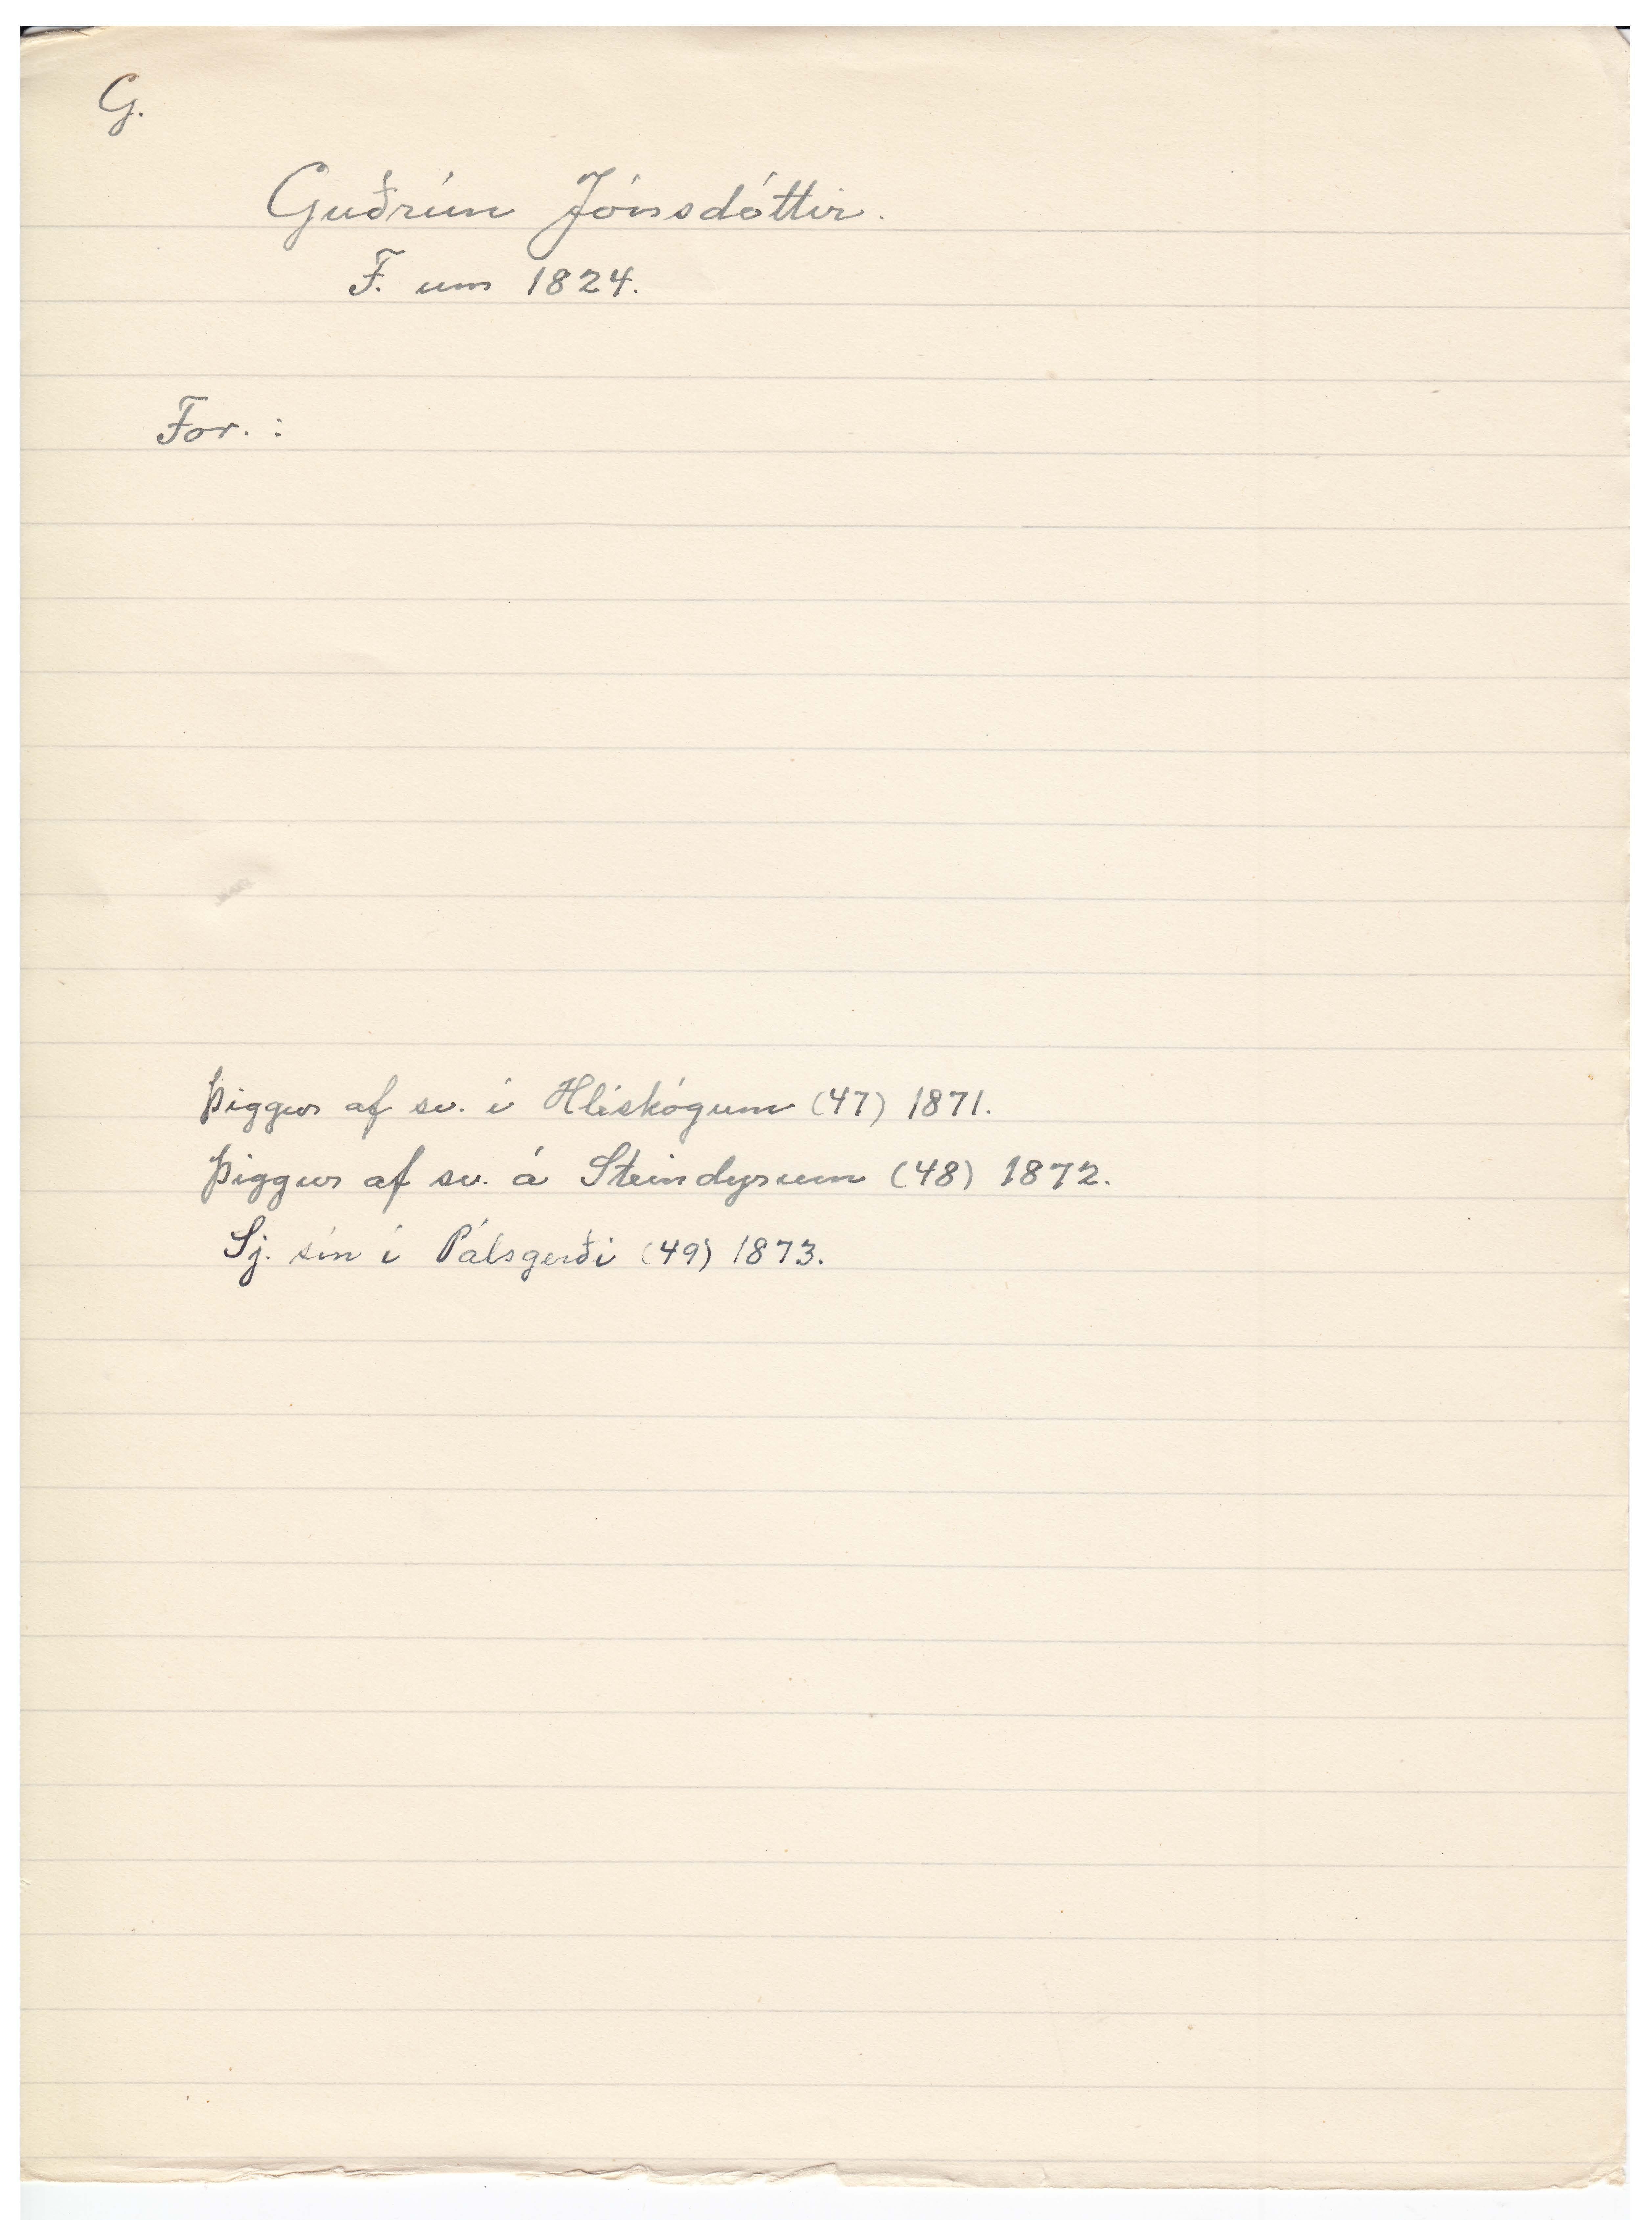 G.
Guðrún Jónsdóttir.
F. um 1824.
For. :
Þiggur af sv. í Hléskógum (47) 1871.
Þiggur af sv. á Steindyrum (48) 1872.
Sj. sín í Pálsgerði (49) 1873.